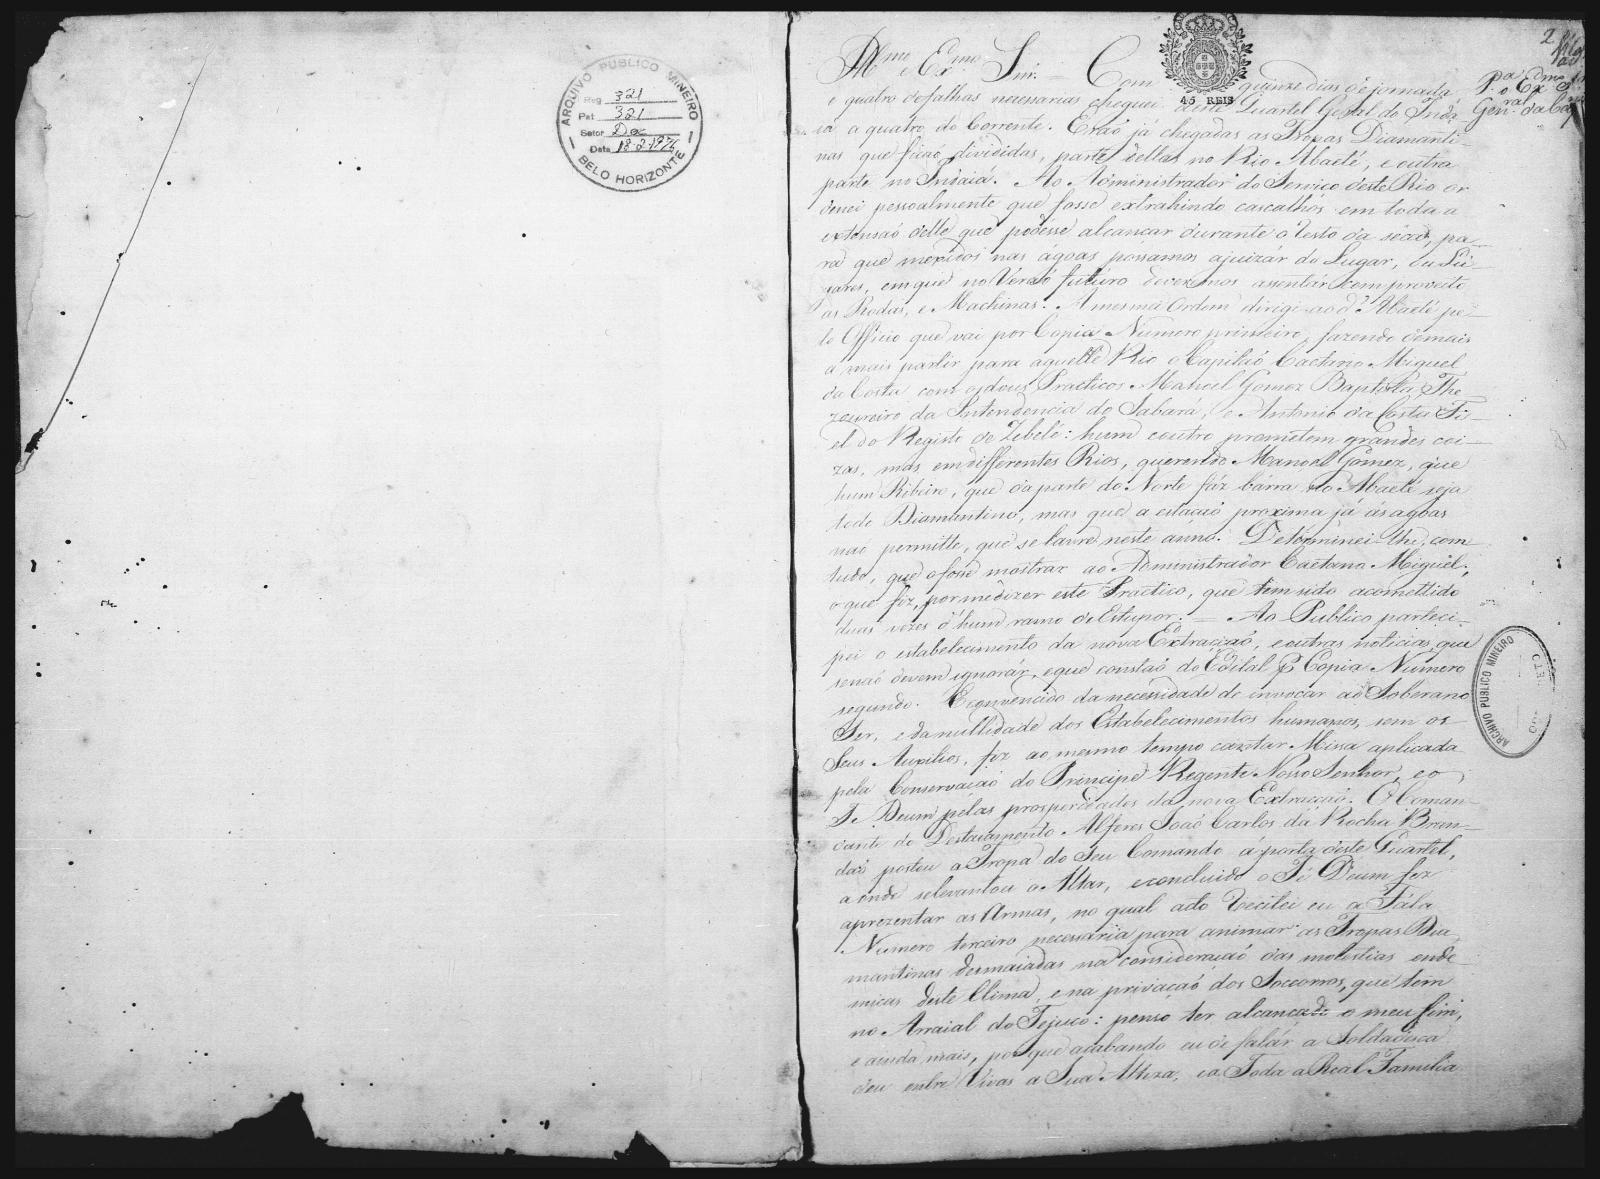 ARQUIVO PUBLICO MINEIRO
Reg 321
Pat 321
Setor Doc
Data 18-2-1976
BELO HORIZONTE
2
Pa
o Ex
Genral da Ca
45 REIS
Illmo e Exmo Snr. = Com quinze dias de jornada
e quatro de falhas necessarias cheguei a este Quartel Geral do Indá
iá a quatro do Corrente. Eraõ já chegadas as Tropas Diamanti-
nas que ficaõ divididas, parte dellas no Rio Abaeté, e outra
parte no Indaiá. Ao Administrador do Servico deste Rio or
denei pessoalmente que fosse extrahindo cascalhos em toda a
extensaõ delle que podesse alcançar durante o resto da sêca, pa-
ra que mexidos nas ágoas possamos ajuizár do Lugar, ou Lu-
gares, em que no Veraõ futuro devermos asentár com proveito
as Rodas, e Machinas. A mesma Ordem dirigi ao do Abaeté pe-
lo Officio que vai por Copia Numero primeiro, fazendo demais
a mais partir para aquelle Rio o Capitaõ Caetano Miguel
da Costa com os dous Practicos Manoel Gomez Baptista The
zoureiro da Intendencia do Sabará, e Antonio da Costa Fi-
el do Registo de Zebelé: hum e outro prometem grandes coi-
zas, mas em differentes Rios, querendo Manoel Gomez, que
hum Ribeiro, que da parte do Norte fáz bárra no Abaeté seja
todo Diamantino, mas que a estaçaõ proxima já ás agoas
naõ permitte, que se lavre neste ánno. Determinei-lhe, com
tudo, que o fosse mostrar ao Administrador Caetano Miguel;
o que fiz, por me dizer este Practico, que tem sido acomettido
duas vezes d'hum ramo de Estupor. = Ao Publico parteci-
pei o estabelecimento da nova Extracçaõ, e outras noticias, que
senaõ devem ignorár, e que constaõ do Edital p Copia Numero
segundo. Convencido da necessidade de invocar ao Soberano
Ser, e da nullidade dos Estabelecimentos humanos, sem os
Seus Auxilios, fiz ao mesmo tempo cantar Missa aplicada
pela Conservaçaõ do Principe Regente Nosso Senhor, e o
Te Deum pélas prosperidades da nova Extracçaõ. O Coman-
dante do Destacamento Alferes Joaõ Carlos da Rocha Bran-
daõ postou a Tropa do Seu Comando a porta deste Quartel,
aonde se levantou o Altar, e concluido o Te Deum fez
aprezentar as Armas, no qual acto recitei eu a Fála
Numero terceiro necessaria para animar as Tropas Dia
mantinas desmaiadas na consideraçaõ das molestias ende
micas deste Clima, e na privaçaõ dos Soccorros, que tem
no Arraial do Tejuco: penso ter alcançado o meu fim,
e ainda mais, por que acabando eu de falár a Soldadesca
deu entre Vivas a Sua Alteza, e a Toda a Real Familia
ARCHIVO PUBLICO MINEIRO